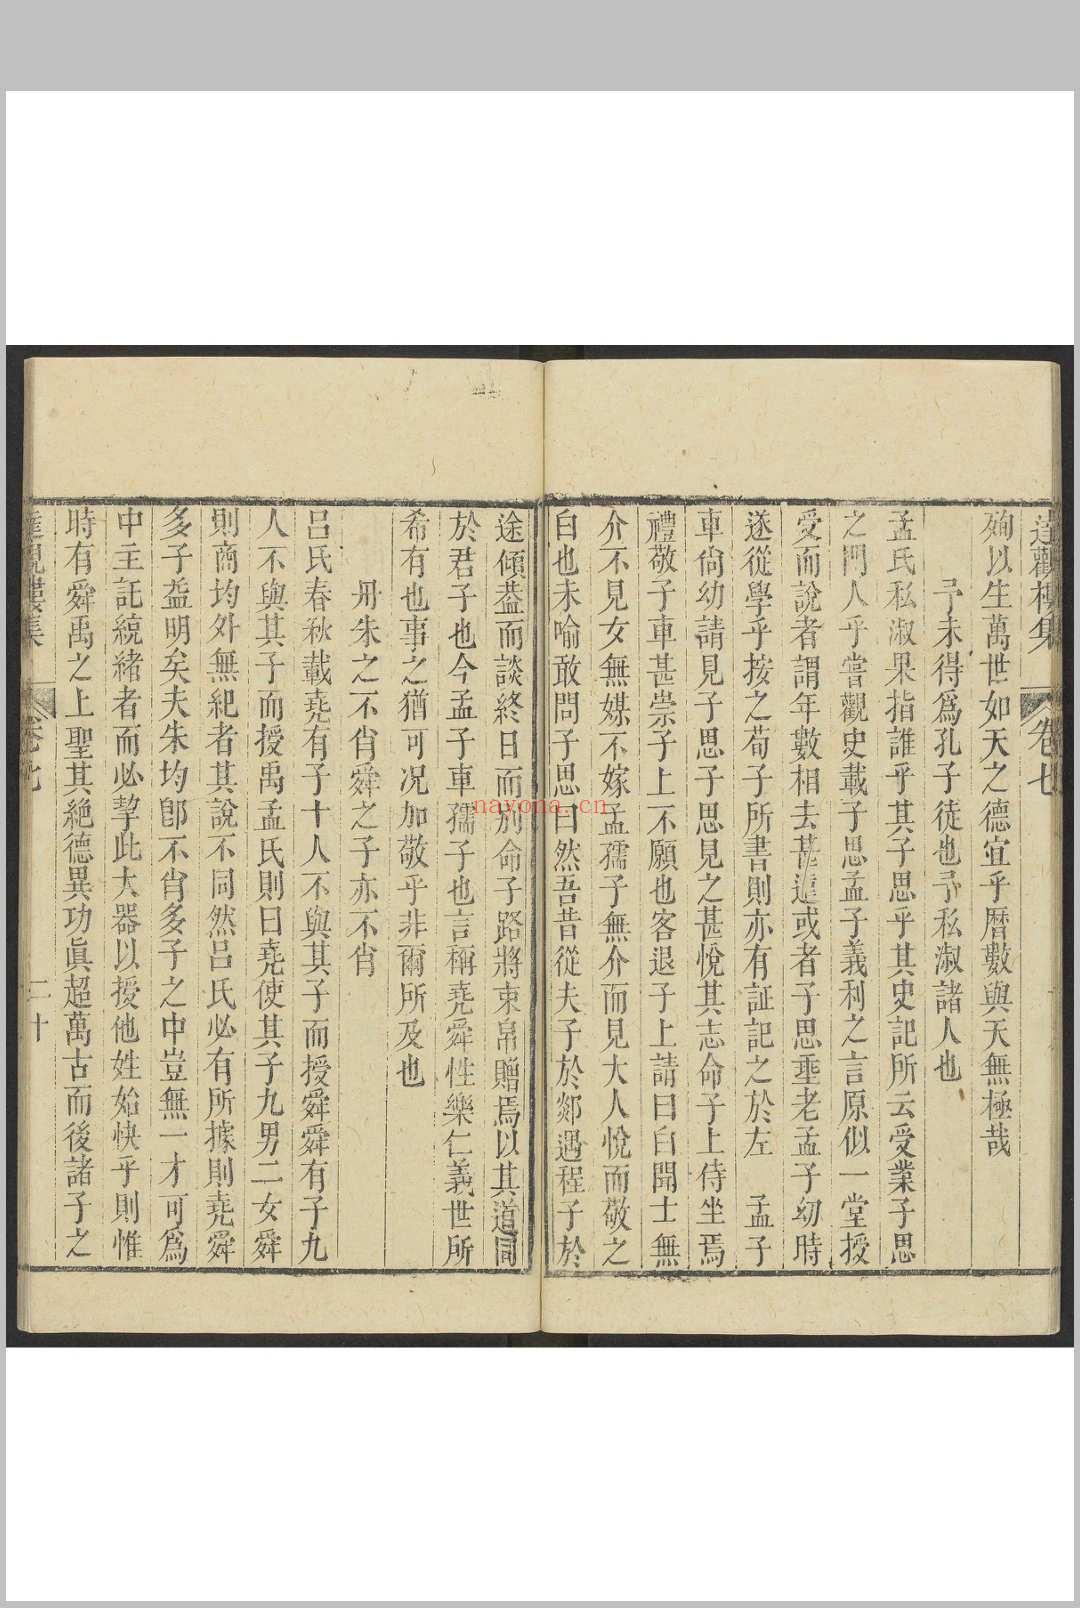 達觀樓集 卷七
殉以生萬世如天之德宜乎暦數與天無極哉
予未得爲孔子徒也予私淑諸人也
孟氏私淑果指誰乎其子思乎其史記所云受業子思
之門人乎嘗觀史載子思孟子義利之言原似一堂授
受而說者謂年數相去甚遠或者子思垂老孟子幼時
遂從學乎按之荀子所書則亦有証記之於左 孟子
車尙幼請見子思子思見之甚悅其志命子上侍坐焉
禮敬子車甚崇子上不願也客退子上請曰白聞士無
介不見女無媒不嫁孟孺子無介而見大人悅而敬之
白也未喻敢問子思曰然吾昔從夫子於郯遇程子於
途傾葢而談終日而別命子路將束帛贈焉以其道同
於君子也今孟子車孺子也言稱堯舜性樂仁義世所
希有也事之猶可况加敬乎非爾所及也
丹朱之不肖舜之子亦不肖
呂氏春秋載堯有子十人不與其子而授舜舜有子九
人不與其子而授禹孟氏則曰堯使其子九男二女舜
則商均外無紀者其說不同然呂氏必有所據則堯舜
多子益明矣夫朱均卽不肖多子之中豈無一才可爲
中主託統緒者而必挈此大器以授他姓始快乎則惟
時有舜禹之上聖其絶德異功眞超萬古而後諸子之
達觀樓集 卷七 二十
nayona.cn